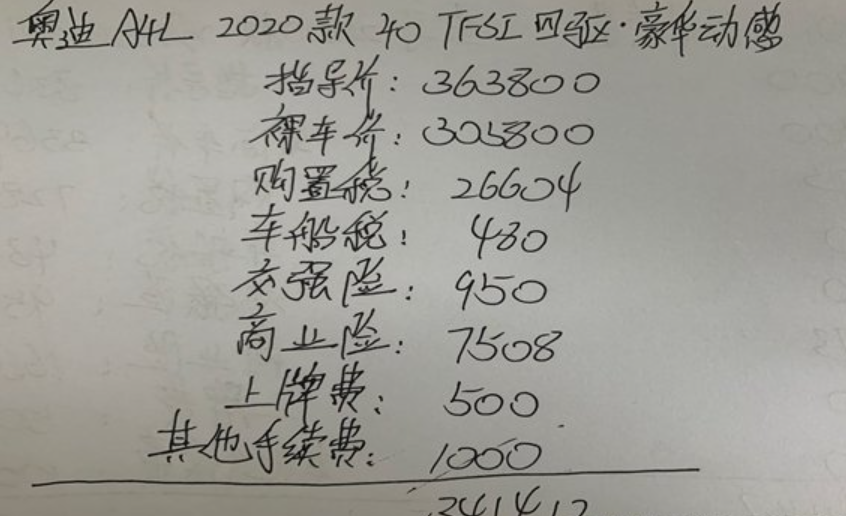 奥迪 A4L 2020款 40 TFSI 四驱·豪华动感
指导价：363800
裸车价：305800
购置税：26604
车船税：480
交强险：950
商业险：7508
上牌费：500
其他手续费：1000